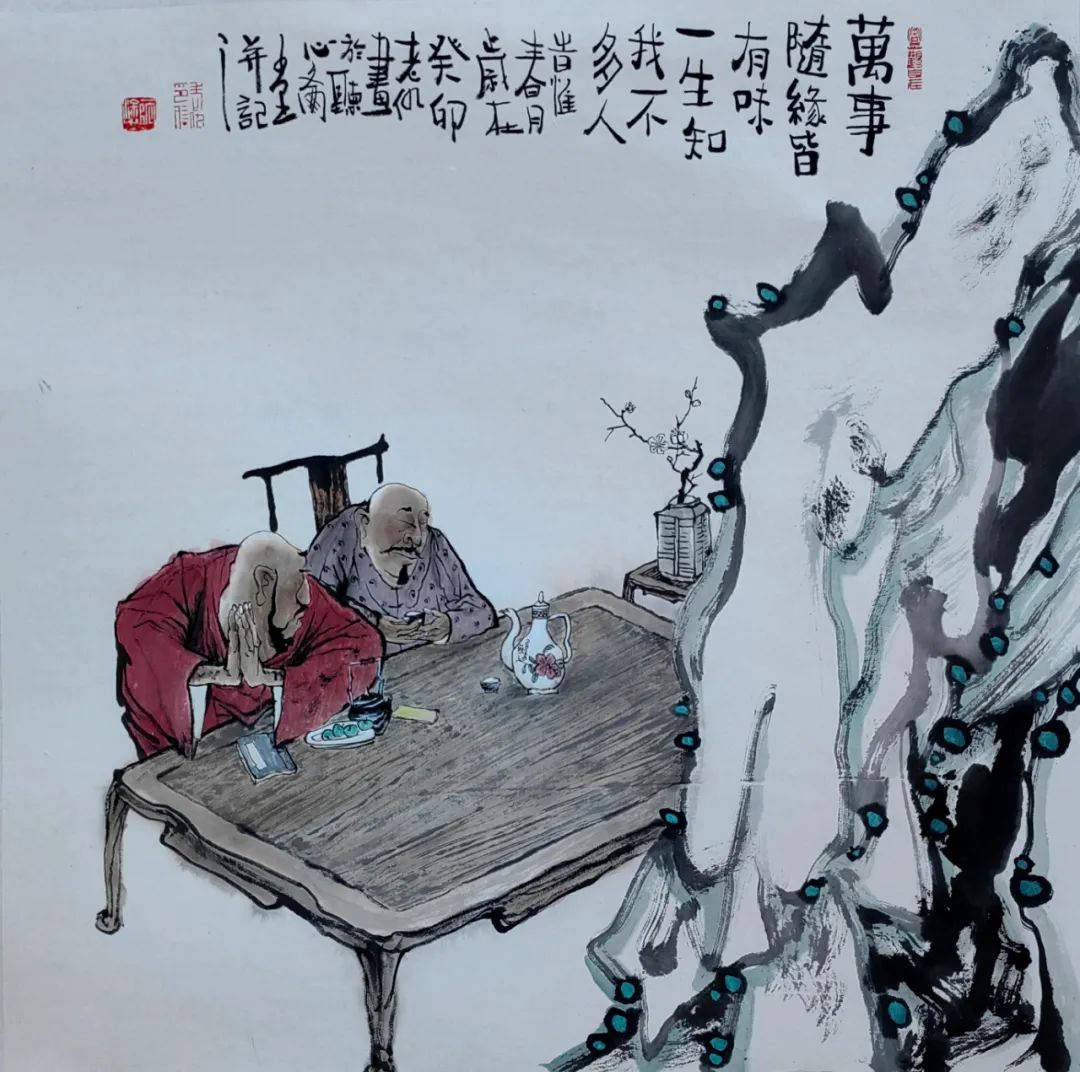 萬事
隨緣皆
有味
一生知
我不
多人
旹惟
春月
歲在
癸卯
老
畫
於聽
心
并記